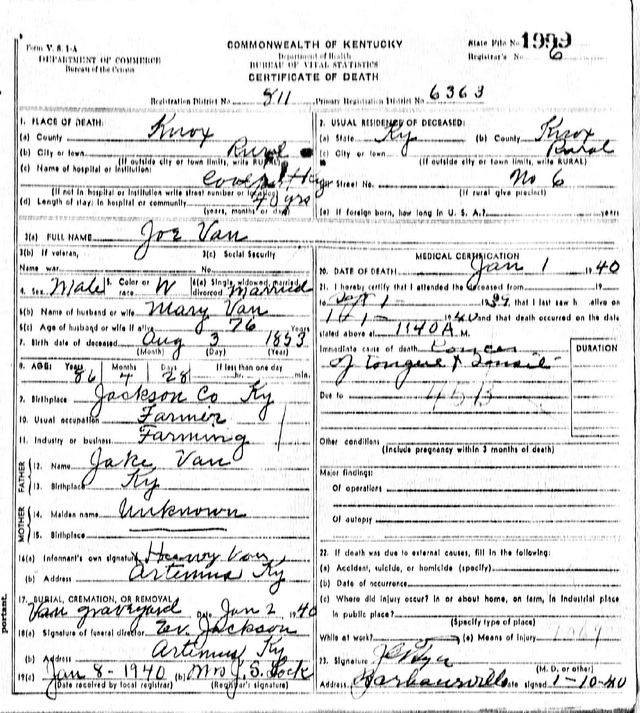 Form V. S. 1-A
DEPARTMENT OF COMMERCE
Bureau of the Census
COMMONWEALTH OF KENTUCKY
Department of Health
BUREAU OF VITAL STATISTICS
CERTIFICATE OF DEATH
State File No. 1999
Registrar's No. 6
Registration District No. 811 Primary Registration District No. 6363
1. PLACE OF DEATH:
(a) County Knox
(b) City or town Rural
(If outside city or town limits, write RURAL)
(c) Name of hospital or institution:
(If not in hospital or institution write street number or location)
(d) Length of stay: In hospital or community 70 yrs
(years, months or days)
2. USUAL RESIDENCE OF DECEASED:
(a) State Ky (b) County Knox
(c) City or town Rural
(If outside city or town limits, write RURAL)
Street No. No 6
(If rural give precinct)
(e) If foreign born, how long in U. S. A.? years
3(a) FULL NAME Joe Van
3(b) If veteran, 3(c) Social Security
Name war No.
4. Sex Male 5. Color or race W 6(a) Single, widowed, married, divorced Married
6(b) Name of husband or wife Mary Van
6(c) Age of husband or wife if alive 76 Years
7. Birth date of deceased Aug 3 1853
(Month) (Day) (Year)
8. AGE: Years Months Days If less than one day
86 4 28 hr. min.
9. Birthplace Jackson Co Ky
10. Usual occupation Farmer
11. Industry or business Farming
FATHER
12. Name Jake Van
13. Birthplace Ky
MOTHER
14. Maiden name Unknown
15. Birthplace
16(a) Informant's own signature Henry Van
(b) Address Artemus Ky
17. BURIAL, CREMATION, OR REMOVAL
Van graveyard Date Jan 2 1940
18(a) Signature of funeral director Ev. Jackson
(b) Address Artemus Ky
19(a) Jan 8-1940 (b) Mrs J. S. Lock
(Date received by local registrar) (Registrar's signature)
MEDICAL CERTIFICATION
20. DATE OF DEATH Jan 1 1940
21. I hereby certify that I attended the deceased from 19
to Sept 1- 1939 that I last saw h alive on
1-1- 1940 and that death occurred on the date
stated above at 1140 A. M.
Immediate cause of death Cancer
of tongue & tonsil
DURATION
Due to 45B
Other conditions
(Include pregnancy within 3 months of death)
Major findings:
Of operations
Of autopsy
22. If death was due to external causes, fill in the following:
(a) Accident, suicide, or homicide (specify)
(b) Date of occurrence
(c) Where did injury occur? In or about home, on farm, in industrial place
in public place?
(Specify type of place)
While at work? (e) Means of injury
23. Signature
(M. D. or other)
Address Barbourville Date signed 1-10-40
portant.